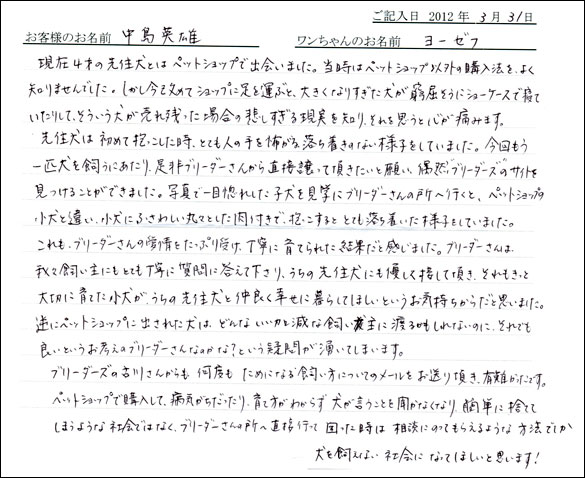 ご記入日 2012 年 3 月 31 日
お客様のお名前 中島英雄 ワンちゃんのお名前 ヨーゼフ
現在4才の先住犬とはペットショップで出会いました。当時はペットショップ以外の購入法を、よく
知りませんでした。しかし今改めてショップに足を運ぶと、大きくなりすぎた犬が窮屈そうにショーケースで寝て
いたりして、そういう犬が売れ残った場合の悲しすぎる現実を知り、それを思うと心が痛みます。
先住犬は初めて抱っこした時、とても人の手を怖がる、落ち着きのない様子をしていました。今回もう
一匹犬を飼うにあたり、是非ブリーダーさんから直接譲って頂きたいと願い、偶然「ブリーダーズ」のサイトを
見つけることができました。写真で一目惚れした子犬を見学にブリーダーさんの所へ行くと、ペットショップの
小犬と違い、小犬にふさわしい丸々とした肉付きで、抱っこするととても落ち着いた様子をしていました。
これも、ブリーダーさんの愛情をたっぷり受け、丁寧に育てられた結果だと感じました。ブリーダーさんは、
我々飼い主にもとても丁寧に質問に答えて下さり、うちの先住犬にも優しく接して頂き、それもきっと
大切に育てた小犬が、うちの先住犬と仲良く幸せに暮らしてほしいというお気持ちからだと思いました。
逆にペットショップに出された犬は、どんないい加減な飼い主に渡るかもしれないのに、それでも
良いというお考えのブリーダーさんなのかな?という疑問が湧いてしまいます。
ブリーダーズの古川さんからも、何度もためになる飼い方についてのメールをお送り頂き、有難かったです。
ペットショップで購入して、病気がちだったり、育て方がわからず犬が言うことを聞かなくなり、簡単に捨てて
しまうような社会ではなく、ブリーダーさんの所へ直接行って困った時は相談にのってもらえるような方法でしか
犬を飼えない社会になってほしいと思います!